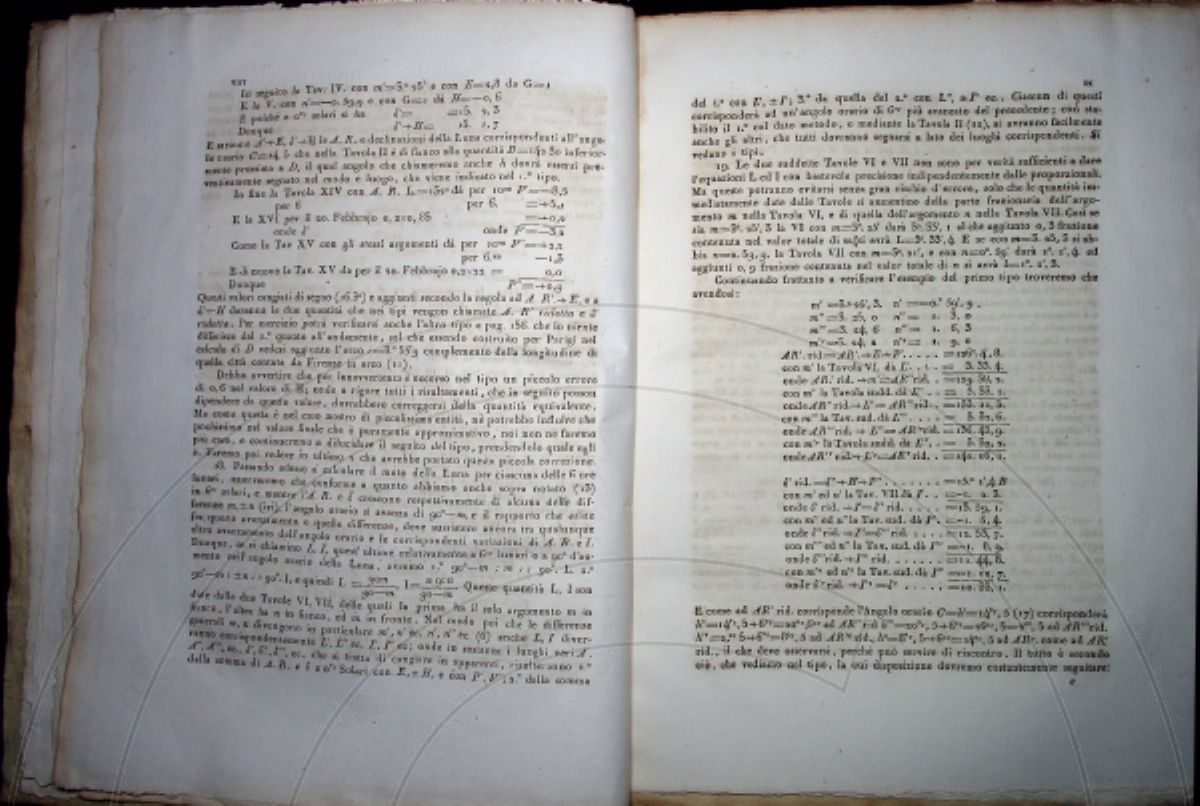 In seguito la Tav. IV. con m'=3.° 28' e con E=2,8 da G=1
E la V. con
E poiché a 0.h solari si ha δ'= 15. 4, 3
Dunque δ'+H= 15. 2, 7
E saranno A'+E, δ'+H le A. R. e declinazioni della Luna corrispondenti all'ango-
lo orario C=14, 5 che nella Tavola II è di fianco alla quantità
mente prossima a D, il qual angolo che chiameremo anche h dovrà essersi pre-
ventivamente segnato nel modo e luogo, che viene indicato nel 1.° tipo.
In fine la Tavola XIV con A. R. dà per 10.m P'=-8,5
per 6 per 6. =+5,2
E la XVI per il 20. Febbrajo =+0,2
onde P' onde P'=-3,2
Come la Tav XV con gli stessi argomenti dà per 10.m P''=+2,2
per 6.m -1,3
E di nuovo la Tav. XV da per il 20. Febbrajo = 0,0
Dunque P''=+0,9
Questi valori cangiati di segno e aggiunti secondo la regola ad A. R.'+E, e a
δ'+H daranno le due quantità che nei tipi vengon chiamate A. R' ridotta e δ'
ridotta. Per esercizio potrà verificarsi anche l'altro tipo a pag. 186. che in niente
differisce dal 1.° quanto all'andamento, sol che essendo costruito per Parigi nel
calcolo di D vedesi aggiunto l'arco complemento della longitudine di
quella città contata da Firenze in arco (11).
Debbo avvertire che per inavvertenza è occorso nel tipo un piccolo errore
di 0,6 nel valore di H; onde a rigore tutti i risultamenti, che in seguito posson
dipendere da questo valore, dovrebbero correggersi della quantità equivalente.
Ma come questa è nel caso nostro di piccolissima entità, nè potrebbe indurre che
pochissimo nel valore finale che è puramente approssimativo, noi non ne faremo
più caso, e continueremo a dilucidare il seguito del tipo, prendendolo quale egli
è. Faremo poi vedere in ultimo ciò che avrebbe portato questa piccola correzione.
18. Passando adesso a calcolare il moto della Luna per ciascuna delle 6 ore
lunari, osserveremo che conforme a quanto abbiamo anche sopra notato (15)
in 6.h solari, e mentre l'A. R. e δ crescono respettivamente di alcuna delle dif-
ferenze m, ±n l'angolo orario si avanza di 90°-m, e il rapporto che esiste
fra questo avanzamento e quelle differenze, deve sussistere ancora tra qualunque
altro avanzamento dell'angolo orario e le corrispondenti variazioni di A. R. e δ.
Dunque, se si chiamino L, l, quest'ultime relativamente a 6.h lunari o a 90° d'au-
mento nell'angolo orario della Luna, avremo 1.° 90°-m : m :: 90°. L 2.°
90°-m : ±n :: 90°. l, e quindi L = 90m/90-m l=±90n/90-m Queste quantità L, l son
date dalle due Tavole VI, VII, delle quali la prima ha il solo argomento m in
fianco, l'altra ha n in fianco, ed m in fronte. Nel modo poi che le differenze
generali m, n divengono in particolare m', n' ec. (6) anche L, l diver-
ranno corrispondentemente L', L'' ec. l', l'' ec; onde in sostanza i luoghi veri A',
A'', A''', ec. δ', δ'', δ''', ec. che si tratta di cangiare in apparenti, risulteranno 1.°
dalla somma di A. R. e δ a 0.h Solari con E, ± H, e con P', P''; 2.° dalla somma
del 1.° con L', ±l'; 3.° da quella del 2.° con L'', ±l'' ec. Ciascun di questi
corrisponderà ad un'angolo orario di 6.h più avanzato del precedente; così sta-
bilito il 1.° col dato metodo, e mediante la Tavola II (12), si avranno facilmente
anche gli altri, che tutti dovranno segnarsi a lato dei luoghi corrispondenti. Si
vedano i tipi.
19. Le due suddette Tavole VI e VII non sono per verità sufficienti a dare
l'equazioni L ed l con bastevole precisione indipendentemente dalle proporzionali.
Ma queste potranno evitarsi senza gran rischio d'errore, solo che le quantità im-
mediatamente date dalle Tavole si aumentino della parte frazionaria dell'argo-
mento m nella Tavola VI, e di quella dell'argomento n nella Tavola VII. Così se
sia m=3°. 25', 3 la VI con m=3°. 25' darà 3°. 33', 1 al che aggiunto 0, 3 frazione
contenuta nel valor totale di m si avrà L=3°. 33', 4. E se con m=3. 25, 3 si ab-
bia n=0. 59, 9. la Tavola VII con m=3°. 21', e con n=0°. 59' darà 1°. 1', 4. ed
aggiunti 0, 9 frazione contenuta nel valor totale di n si avrà l=1°. 2', 3.
Continuando frattanto a verificare l'esempio del primo tipo troveremo che
avendosi:
m' =3.° 25', 3. n' =-0.° 59', 9.
m''=3. 25, 0 n''=- 1. 3, 0
m'''=3. 24, 6 n'''=- 1. 6, 3
m''''=3. 24, 2 n''''=- 1. 9, 0
AR'. rid=AR'.+E+P'. . . . . =126°. 4, 8.
con m' la Tavola VI. dà L'. . . . = 3. 33, 4.
onde AR.' rid. + L'=AR''rid. . =129. 38, 2.
con m'' la Tavola sudd. dà L''. . = 3. 33, 1.
onde AR''rid.+L''=AR'''rid. . =133. 11, 3.
con m''' la Tav. sud. dà L'''. . . = 3. 32, 6.
onde AR'''rid.+ L'''=AR''''rid. =136. 43, 9.
con m'''' la Tavola sudd. dà L''''. . = 3. 32, 2.
onde AR'''' rid.+L''''=AR.v rid. . =140. 16, 1.
δ' rid.=δ'+H+P''. . . . . . . =15.° 1', 4 B
con m' ed n' la Tav. VII dà l'. . . =-1. 2. 3.
onde δ' rid.+l'=δ'' rid. . . . . . =13. 59, 1.
con m'' ed n'' la Tav. sud. dà l''. =-1. 5, 4.
onde δ'' rid.+l''=δ''' rid. . . . . =12. 53, 7.
con m''' ed n''' la Tav. sud. dà l''' =-1. 8, 9.
onde δ'''rid.+l'''=δ'''' rid. . . . =11. 44, 8.
con m'''' ed n'''' la Tav. sud. dà l'''' =-1. 11, 7.
onde δ''''rid.+l''''=δ.v . . . . . =10. 33, 1.
E come ad AR' rid. corrisponde l'Angolo orario C=h'=14h, 5 (17) corrisponderà
rid., il che deve osservarsi, perchè può servire di riscontro. Il tutto è secondo
ciò, che vediamo nel tipo, la cui disposizione dovremo costantemente seguitare: